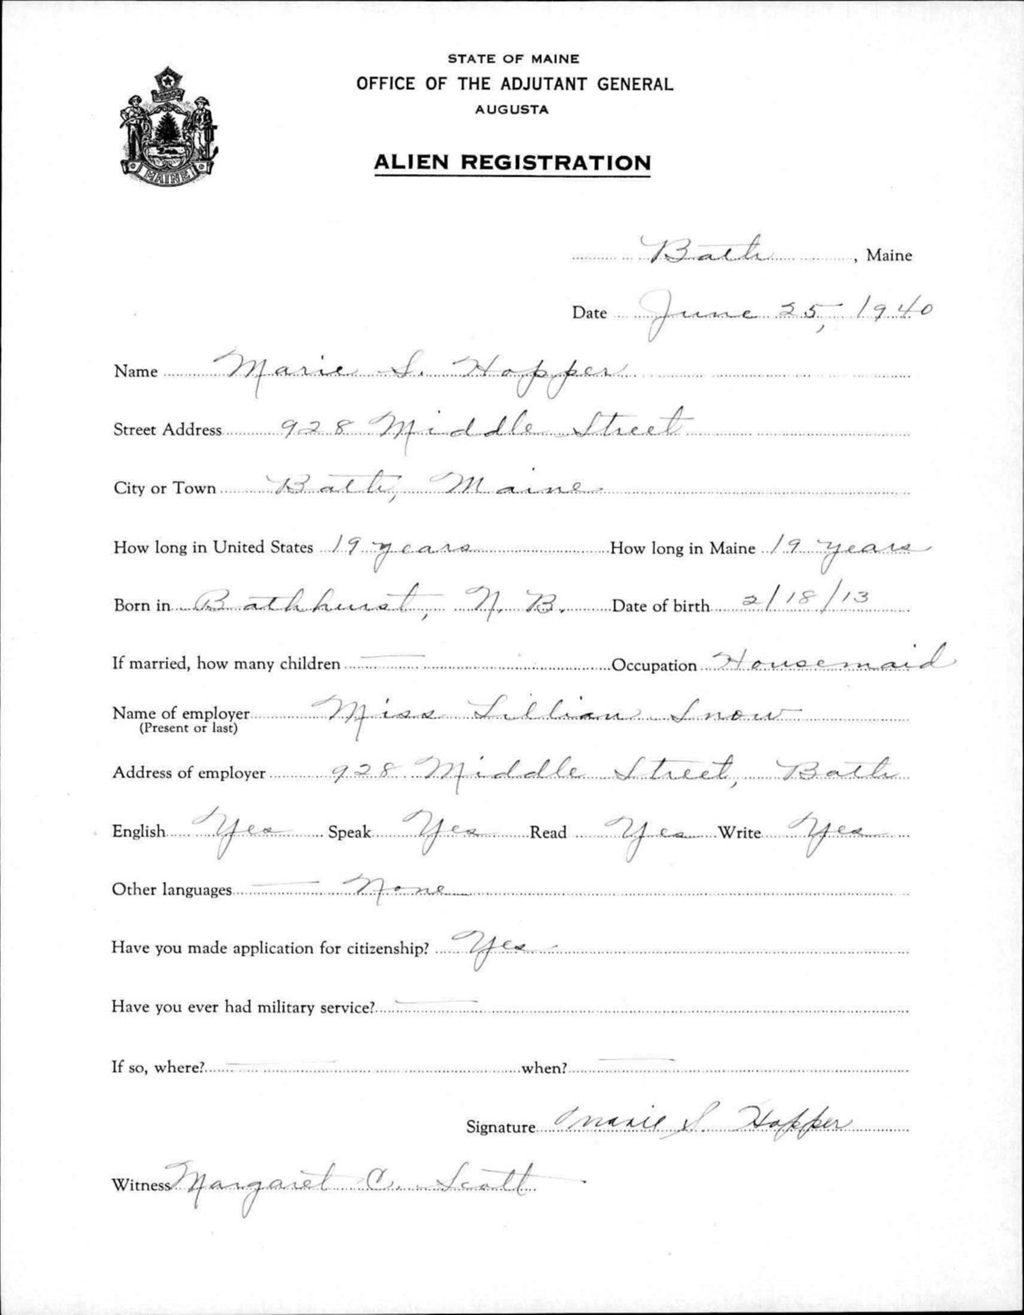 STATE OF MAINE
OFFICE OF THE ADJUTANT GENERAL
AUGUSTA
ALIEN REGISTRATION
MAINE
Bath, Maine
Date June 25, 1940
Name Marie S. Hopper
Street Address 928 Middle Street
City or Town Bath, Maine
How long in United States 19 years How long in Maine 19 years
Born in Bathhurst, N. B. Date of birth 2/18/13
If married, how many children — Occupation Housemaid
Name of employer Miss Lillian Snow
(Present or last)
Address of employer 928 Middle Street, Bath
English Yes Speak Yes Read Yes Write Yes
Other languages — None
Have you made application for citizenship? Yes
Have you ever had military service? —
If so, where? — when? —
Signature Marie S. Hopper
Witness Margaret C. Scott